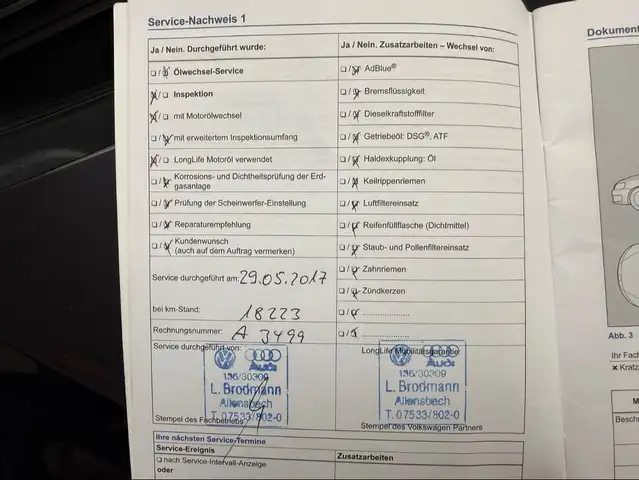 Service-Nachweis 1
Ja / Nein. Durchgeführt wurde:
Ölwechsel-Service
Inspektion
mit Motorölwechsel
mit erweitertem Inspektionsumfang
LongLife Motoröl verwendet
Korrosions- und Dichtheitsprüfung der Erd-
gasanlage
Prüfung der Scheinwerfer-Einstellung
Reparaturempfehlung
Kundenwunsch
(auch auf dem Auftrag vermerken)
Service durchgeführt am: 29.05.2017
bei km-Stand: 18223
Rechnungsnummer: A 3499
Service durchgeführt von:
Audi
136/30309
L. Brodmann
Allensbach
T. 07533/802-0
Stempel des Fachbetriebs
Ja / Nein. Zusatzarbeiten – Wechsel von:
AdBlue®
Bremsflüssigkeit
Dieselkraftstofffilter
Getriebeöl: DSG®, ATF
Haldexkupplung: Öl
Keilrippenriemen
Luftfiltereinsatz
Reifenfüllflasche (Dichtmittel)
Staub- und Pollenfiltereinsatz
Zahnriemen
Zündkerzen
LongLife Mobilitätsgarantie:
Audi
136/30309
L. Brodmann
Allensbach
T. 07533/802-0
Stempel des Volkswagen Partners
Ihre nächsten Service-Termine
Service-Ereignis
Zusatzarbeiten
nach Service-Intervall-Anzeige
oder
Dokument
Abb. 3
Ihr Fach
× Kratz
M
Besch